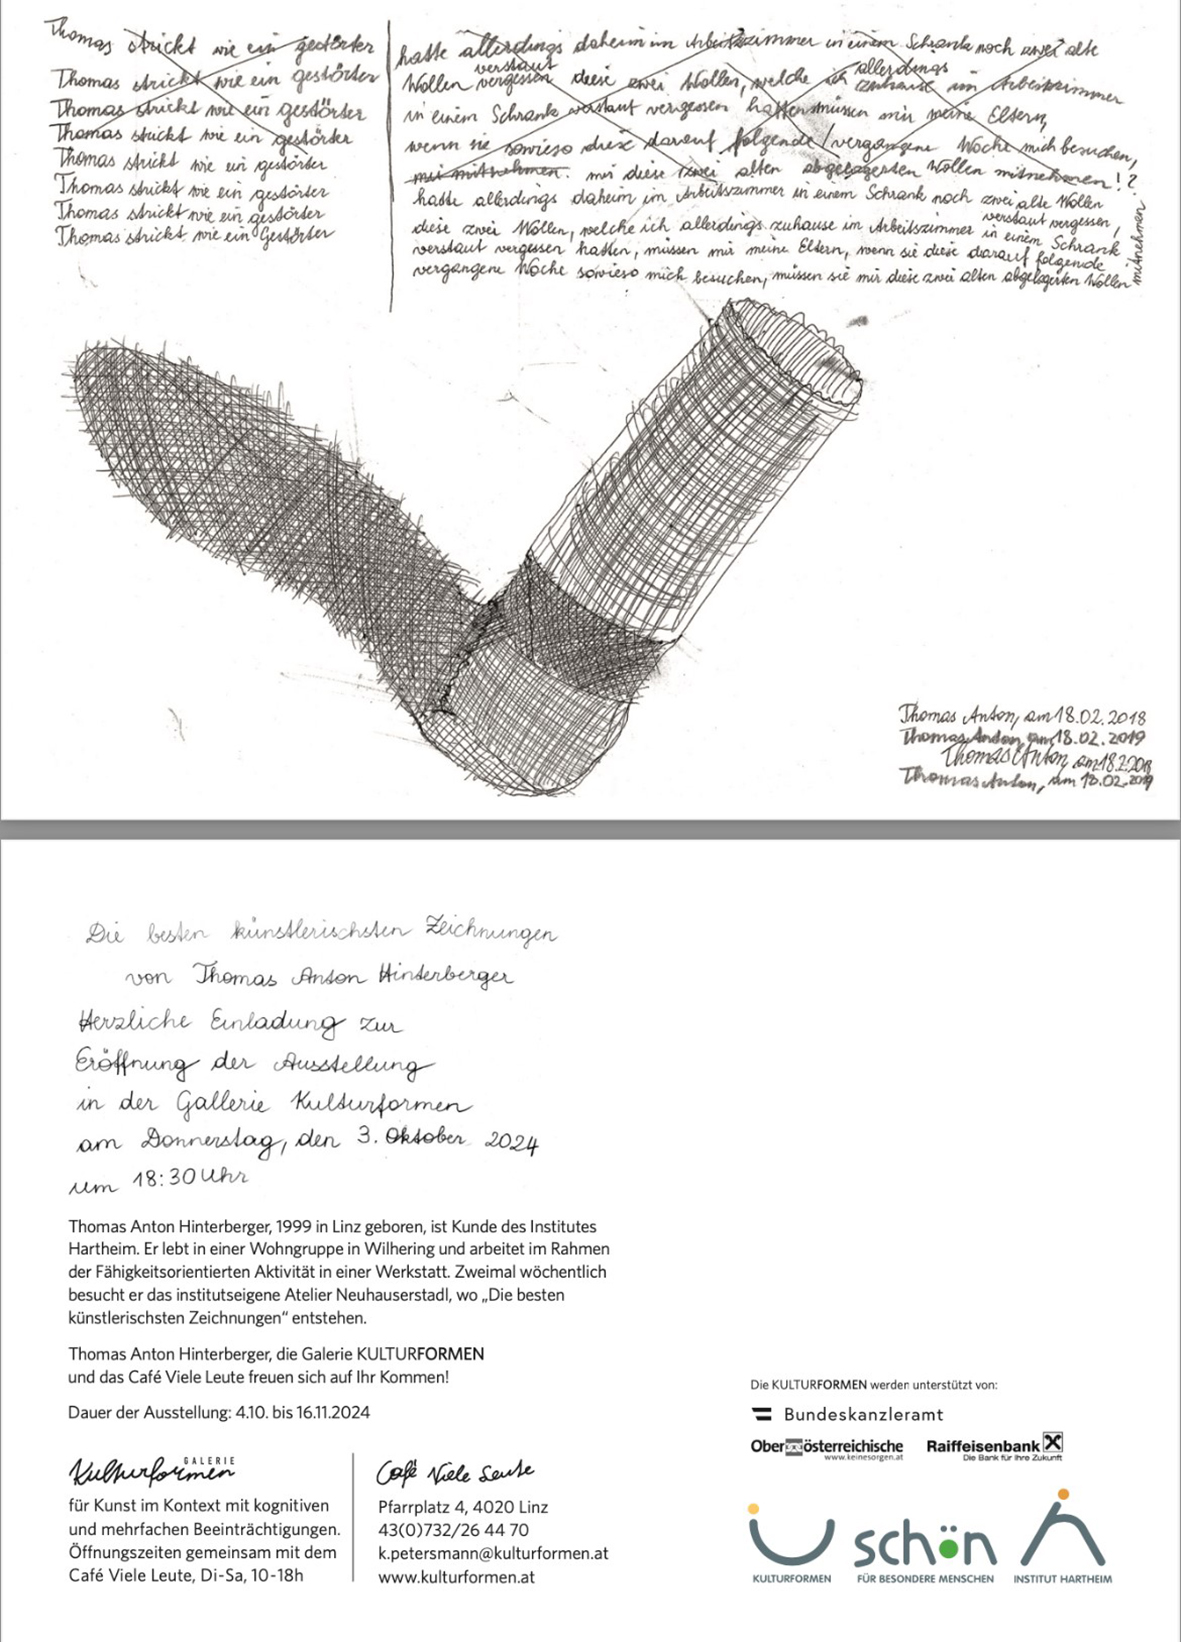 Thomas strickt wie ein gestörter
Thomas strickt wie ein gestörter
Thomas strickt wie ein gestörter
Thomas strickt wie ein gestörter
Thomas strickt wie ein gestörter
Thomas strickt wie ein gestörter
Thomas strickt wie ein gestörter
Thomas strickt wie ein Gestörter
hatte allerdings daheim im Arbeitszimmer in einem Schrank noch zwei alte
verstaut allerdings
Wollen vergessen diese zwei Wollen, welche ich zuhause im Arbeitszimmer
in einem Schrank verstaut vergessen hatten müssen mir meine Eltern,
wenn sie sowieso diese darauf folgende/vergangene Woche mich besuchen,
mir mitnehmen. mir diese zwei alten abgelagerten Wollen mitnehmen!?
hatte allerdings daheim im Arbeitszimmer in einem Schrank noch zwei alte Wollen
verstaut vergessen,
diese zwei Wollen, welche ich allerdings zuhause im Arbeitszimmer in einem Schrank
verstaut vergessen hatten, müssen mir meine Eltern, wenn sie diese darauf folgende
vergangene Woche sowieso mich besuchen, müssen sie mir diese zwei alten abgelagerten Wollen
mitnehmen
Thomas Anton, am 18.02.2018
Thomas Anton, am 18.02.2019
Thomas Anton, am 18.2.2018
Thomas Anton, am 18.02.2019
Die besten künstlerischsten Zeichnungen
von Thomas Anton Hinterberger
Herzliche Einladung zur
Eröffnung der Ausstellung
in der Gallerie Kulturformen
am Donnerstag, den 3. Oktober 2024
um 18:30 Uhr
Thomas Anton Hinterberger, 1999 in Linz geboren, ist Kunde des Institutes
Hartheim. Er lebt in einer Wohngruppe in Wilhering und arbeitet im Rahmen
der Fähigkeitsorientierten Aktivität in einer Werkstatt. Zweimal wöchentlich
besucht er das institutseigene Atelier Neuhauserstadl, wo „Die besten
künstlerischsten Zeichnungen“ entstehen.
Thomas Anton Hinterberger, die Galerie KULTURFORMEN
und das Café Viele Leute freuen sich auf Ihr Kommen!
Dauer der Ausstellung: 4.10. bis 16.11.2024
GALERIE
Kulturformen
für Kunst im Kontext mit kognitiven
und mehrfachen Beeinträchtigungen.
Öffnungszeiten gemeinsam mit dem
Café Viele Leute, Di-Sa, 10-18h
Café Viele Leute
Pfarrplatz 4, 4020 Linz
43(0)732/26 44 70
k.petersmann@kulturformen.at
www.kulturformen.at
Die KULTURFORMEN werden unterstützt von:
Bundeskanzleramt
Oberösterreichische
www.keinesorgen.at
Raiffeisenbank
Die Bank für Ihre Zukunft
KULTURFORMEN
schön
FÜR BESONDERE MENSCHEN
INSTITUT HARTHEIM